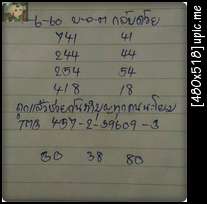 -6-60 บ-อ-ต กลับด้วย
741 41
244 44
254 54
418 18
ถูกแล้วช่วยกันทำบุญทุกคนนะโยม
TMB 457-2-39609-3
30 38 80
[480x518]upic.me